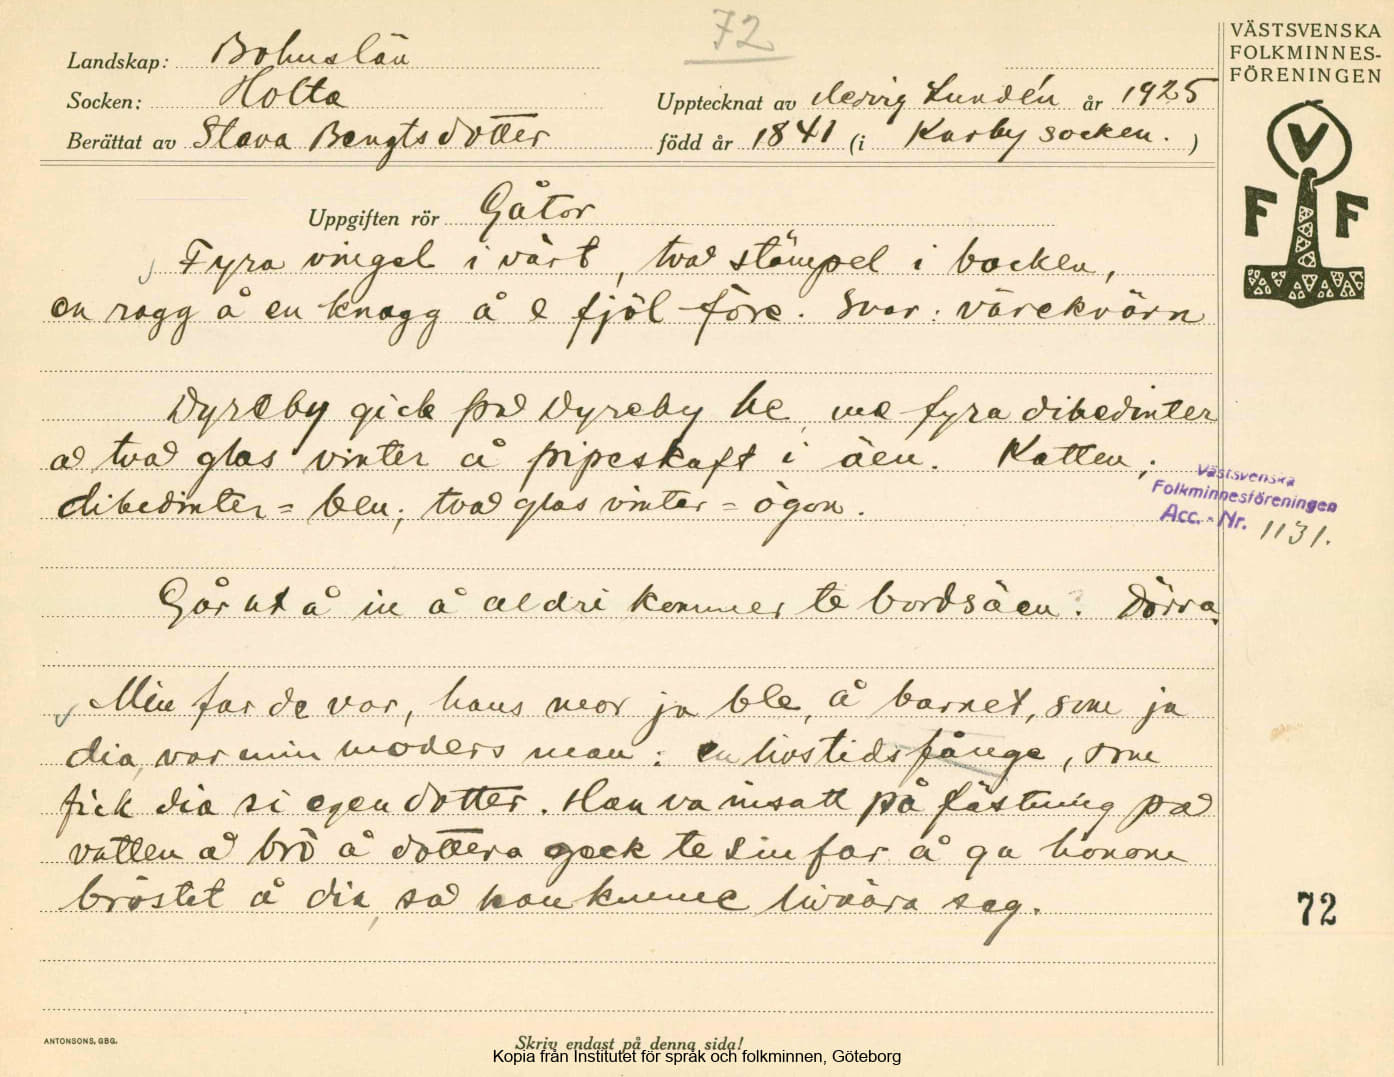 72
VÄSTSVENSKA
FOLKMINNES-
FÖRENINGEN
Landskap: Bohuslän
Socken: Holta
Upptecknat av Hedvig Lundén år 1925
Berättat av Stava Bengtsdotter född år 1841 (i Karby socken.)
V
F F
Uppgiften rör Gåtor
Fyra vingel i värt, två stämpel i bocken,
en ragg å en knagg å e fjöl före. Svar: värekvärn
Dyreby gick på Dyreby he, me fyra dibedinter
å två glas vinter å pipeskaft i äen. Katten;
dibedinter = ben; två glas vinter = ögon.
Västsvenska
Folkminnesföreningen
Acc. - Nr. 1131.
Går ut å in å aldri kommer te bordsäen: Dörra.
Min far de var, hans mor ja ble, å barnet, som ja
dia, var min moders man: en livstidsfånge, som
fick dia si egen dotter. Han va insatt på fästning på
vatten å brö å dottera geck te sin far å ga honom
bröstet å dia, så han kunne livnära seg.
72
ANTONSONS, GBG.
Skriv endast på denna sida!
Kopia från Institutet för språk och folkminnen, Göteborg